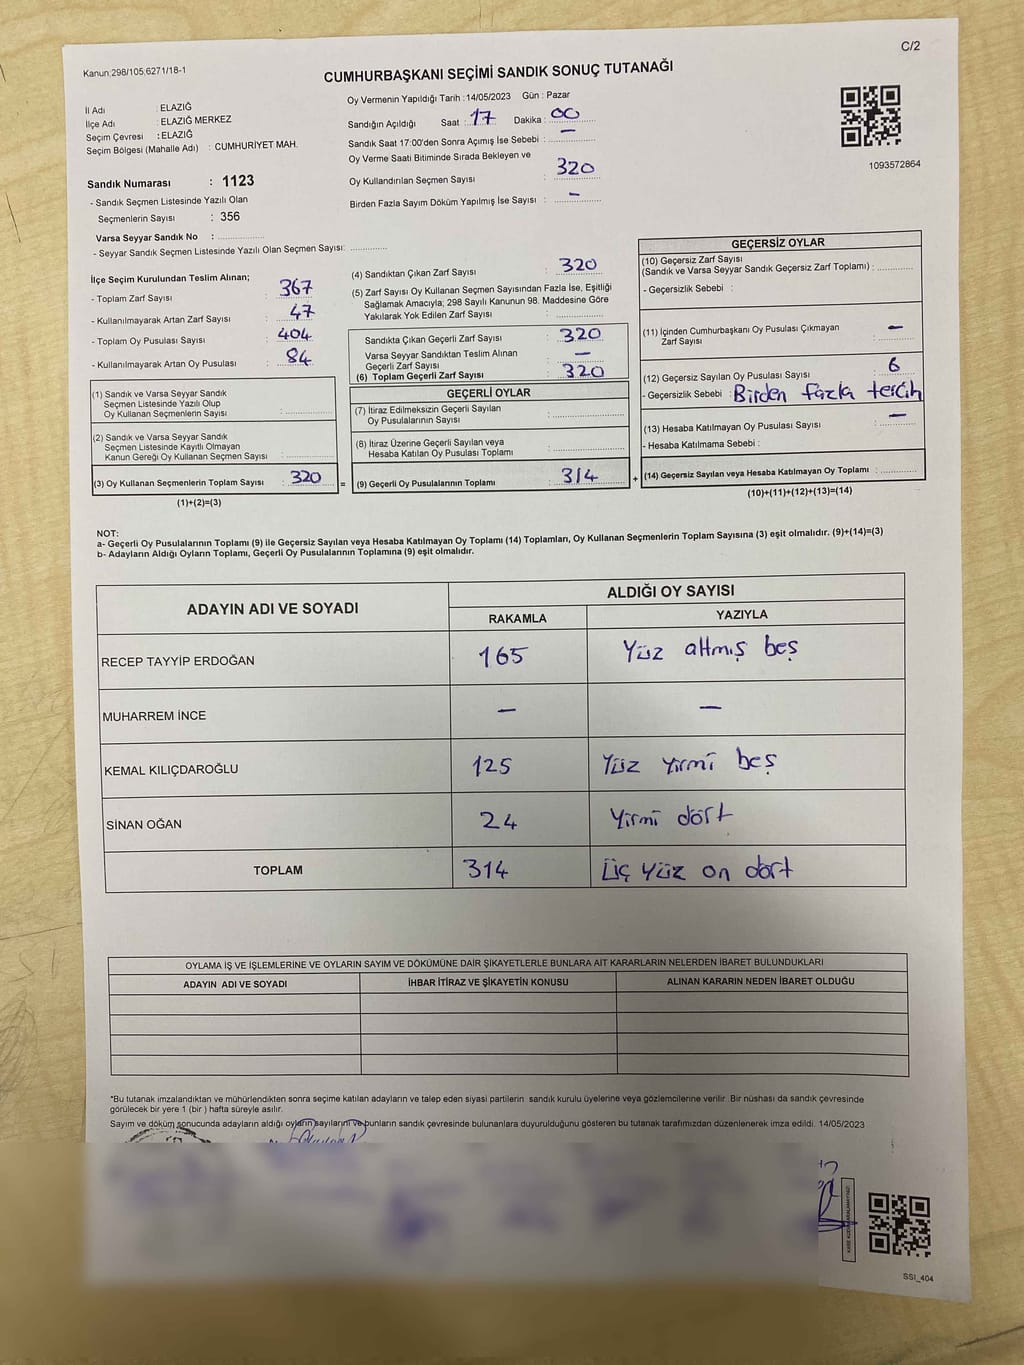 C/2
Kanun;298/105;6271/18-1
CUMHURBAŞKANI SEÇİMİ SANDIK SONUÇ TUTANAĞI
İl Adı : ELAZIĞ
İlçe Adı : ELAZIĞ MERKEZ
Seçim Çevresi : ELAZIĞ
Seçim Bölgesi (Mahalle Adı) : CUMHURİYET MAH.
Oy Vermenin Yapıldığı Tarih : 14/05/2023 Gün : Pazar
Sandığın Açıldığı Saat : 17 Dakika : 00
Sandık Saat 17:00'den Sonra Açımış İse Sebebi : –
Oy Verme Saati Bitiminde Sırada Bekleyen ve
Oy Kullandırılan Seçmen Sayısı : 320
Birden Fazla Sayım Döküm Yapılmış İse Sayısı : –
1093572864
Sandık Numarası : 1123
- Sandık Seçmen Listesinde Yazılı Olan
Seçmenlerin Sayısı : 356
Varsa Seyyar Sandık No : ..................
- Seyyar Sandık Seçmen Listesinde Yazılı Olan Seçmen Sayısı: ............
İlçe Seçim Kurulundan Teslim Alınan;
- Toplam Zarf Sayısı : 367
- Kullanılmayarak Artan Zarf Sayısı : 47
- Toplam Oy Pusulası Sayısı : 404
- Kullanılmayarak Artan Oy Pusulası : 84
(1) Sandık ve Varsa Seyyar Sandık
Seçmen Listesinde Yazılı Olup
Oy Kullanan Seçmenlerin Sayısı : ..................
(2) Sandık ve Varsa Seyyar Sandık
Seçmen Listesinde Kayıtlı Olmayan
Kanun Gereği Oy Kullanan Seçmen Sayısı : ..................
(3) Oy Kullanan Seçmenlerin Toplam Sayısı : 320
(1)+(2)=(3)
(4) Sandıktan Çıkan Zarf Sayısı : 320
(5) Zarf Sayısı Oy Kullanan Seçmen Sayısından Fazla İse, Eşitliği
Sağlamak Amacıyla; 298 Sayılı Kanunun 98. Maddesine Göre
Yakılarak Yok Edilen Zarf Sayısı : ..................
Sandıkta Çıkan Geçerli Zarf Sayısı : 320
Varsa Seyyar Sandıktan Teslim Alınan
Geçerli Zarf Sayısı : –
(6) Toplam Geçerli Zarf Sayısı : 320
GEÇERLİ OYLAR
(7) İtiraz Edilmeksizin Geçerli Sayılan
Oy Pusulasının Sayısı : ..................
(8) İtiraz Üzerine Geçerli Sayılan veya
Hesaba Katılan Oy Pusulası Toplamı : ..................
= (9) Geçerli Oy Pusulalarının Toplamı : 314
GEÇERSİZ OYLAR
(10) Geçersiz Zarf Sayısı
(Sandık ve Varsa Seyyar Sandık Geçersiz Zarf Toplamı) : ............
- Geçersizlik Sebebi :
(11) İçinden Cumhurbaşkanı Oy Pusulası Çıkmayan
Zarf Sayısı : –
(12) Geçersiz Sayılan Oy Pusulası Sayısı : 6
- Geçersizlik Sebebi : Birden fazla tercih
(13) Hesaba Katılmayan Oy Pusulası Sayısı : –
- Hesaba Katılmama Sebebi :
+ (14) Geçersiz Sayılan veya Hesaba Katılmayan Oy Toplamı : ............
(10)+(11)+(12)+(13)=(14)
NOT:
a- Geçerli Oy Pusulalarının Toplamı (9) ile Geçersiz Sayılan veya Hesaba Katılmayan Oy Toplamı (14) Toplamları, Oy Kullanan Seçmenlerin Toplam Sayısına (3) eşit olmalıdır. (9)+(14)=(3)
b- Adayların Aldığı Oyların Toplamı, Geçerli Oy Pusulalarının Toplamına (9) eşit olmalıdır.
ADAYIN ADI VE SOYADI
ALDIĞI OY SAYISI
RAKAMLA YAZIYLA
RECEP TAYYİP ERDOĞAN 165 Yüz altmış beş
MUHARREM İNCE – –
KEMAL KILIÇDAROĞLU 125 Yüz yirmi beş
SİNAN OĞAN 24 Yirmi dört
TOPLAM 314 Üç yüz on dört
OYLAMA İŞ VE İŞLEMLERİNE VE OYLARIN SAYIM VE DÖKÜMÜNE DAİR ŞİKAYETLERLE BUNLARA AİT KARARLARIN NELERDEN İBARET BULUNDUKLARI
ADAYIN ADI VE SOYADI İHBAR İTİRAZ VE ŞİKAYETİN KONUSU ALINAN KARARIN NEDEN İBARET OLDUĞU
*Bu tutanak imzalandıktan ve mühürlendikten sonra seçime katılan adayların ve talep eden siyasi partilerin sandık kurulu üyelerine veya gözlemcilerine verilir. Bir nüshası da sandık çevresinde
görülecek bir yere 1 (bir ) hafta süreyle asılır.
Sayım ve döküm sonucunda adayların aldığı oyların sayılarını ve bunların sandık çevresinde bulunanlara duyurulduğunu gösteren bu tutanak tarafımızdan düzenlenerek imza edildi. 14/05/2023
SSI_404